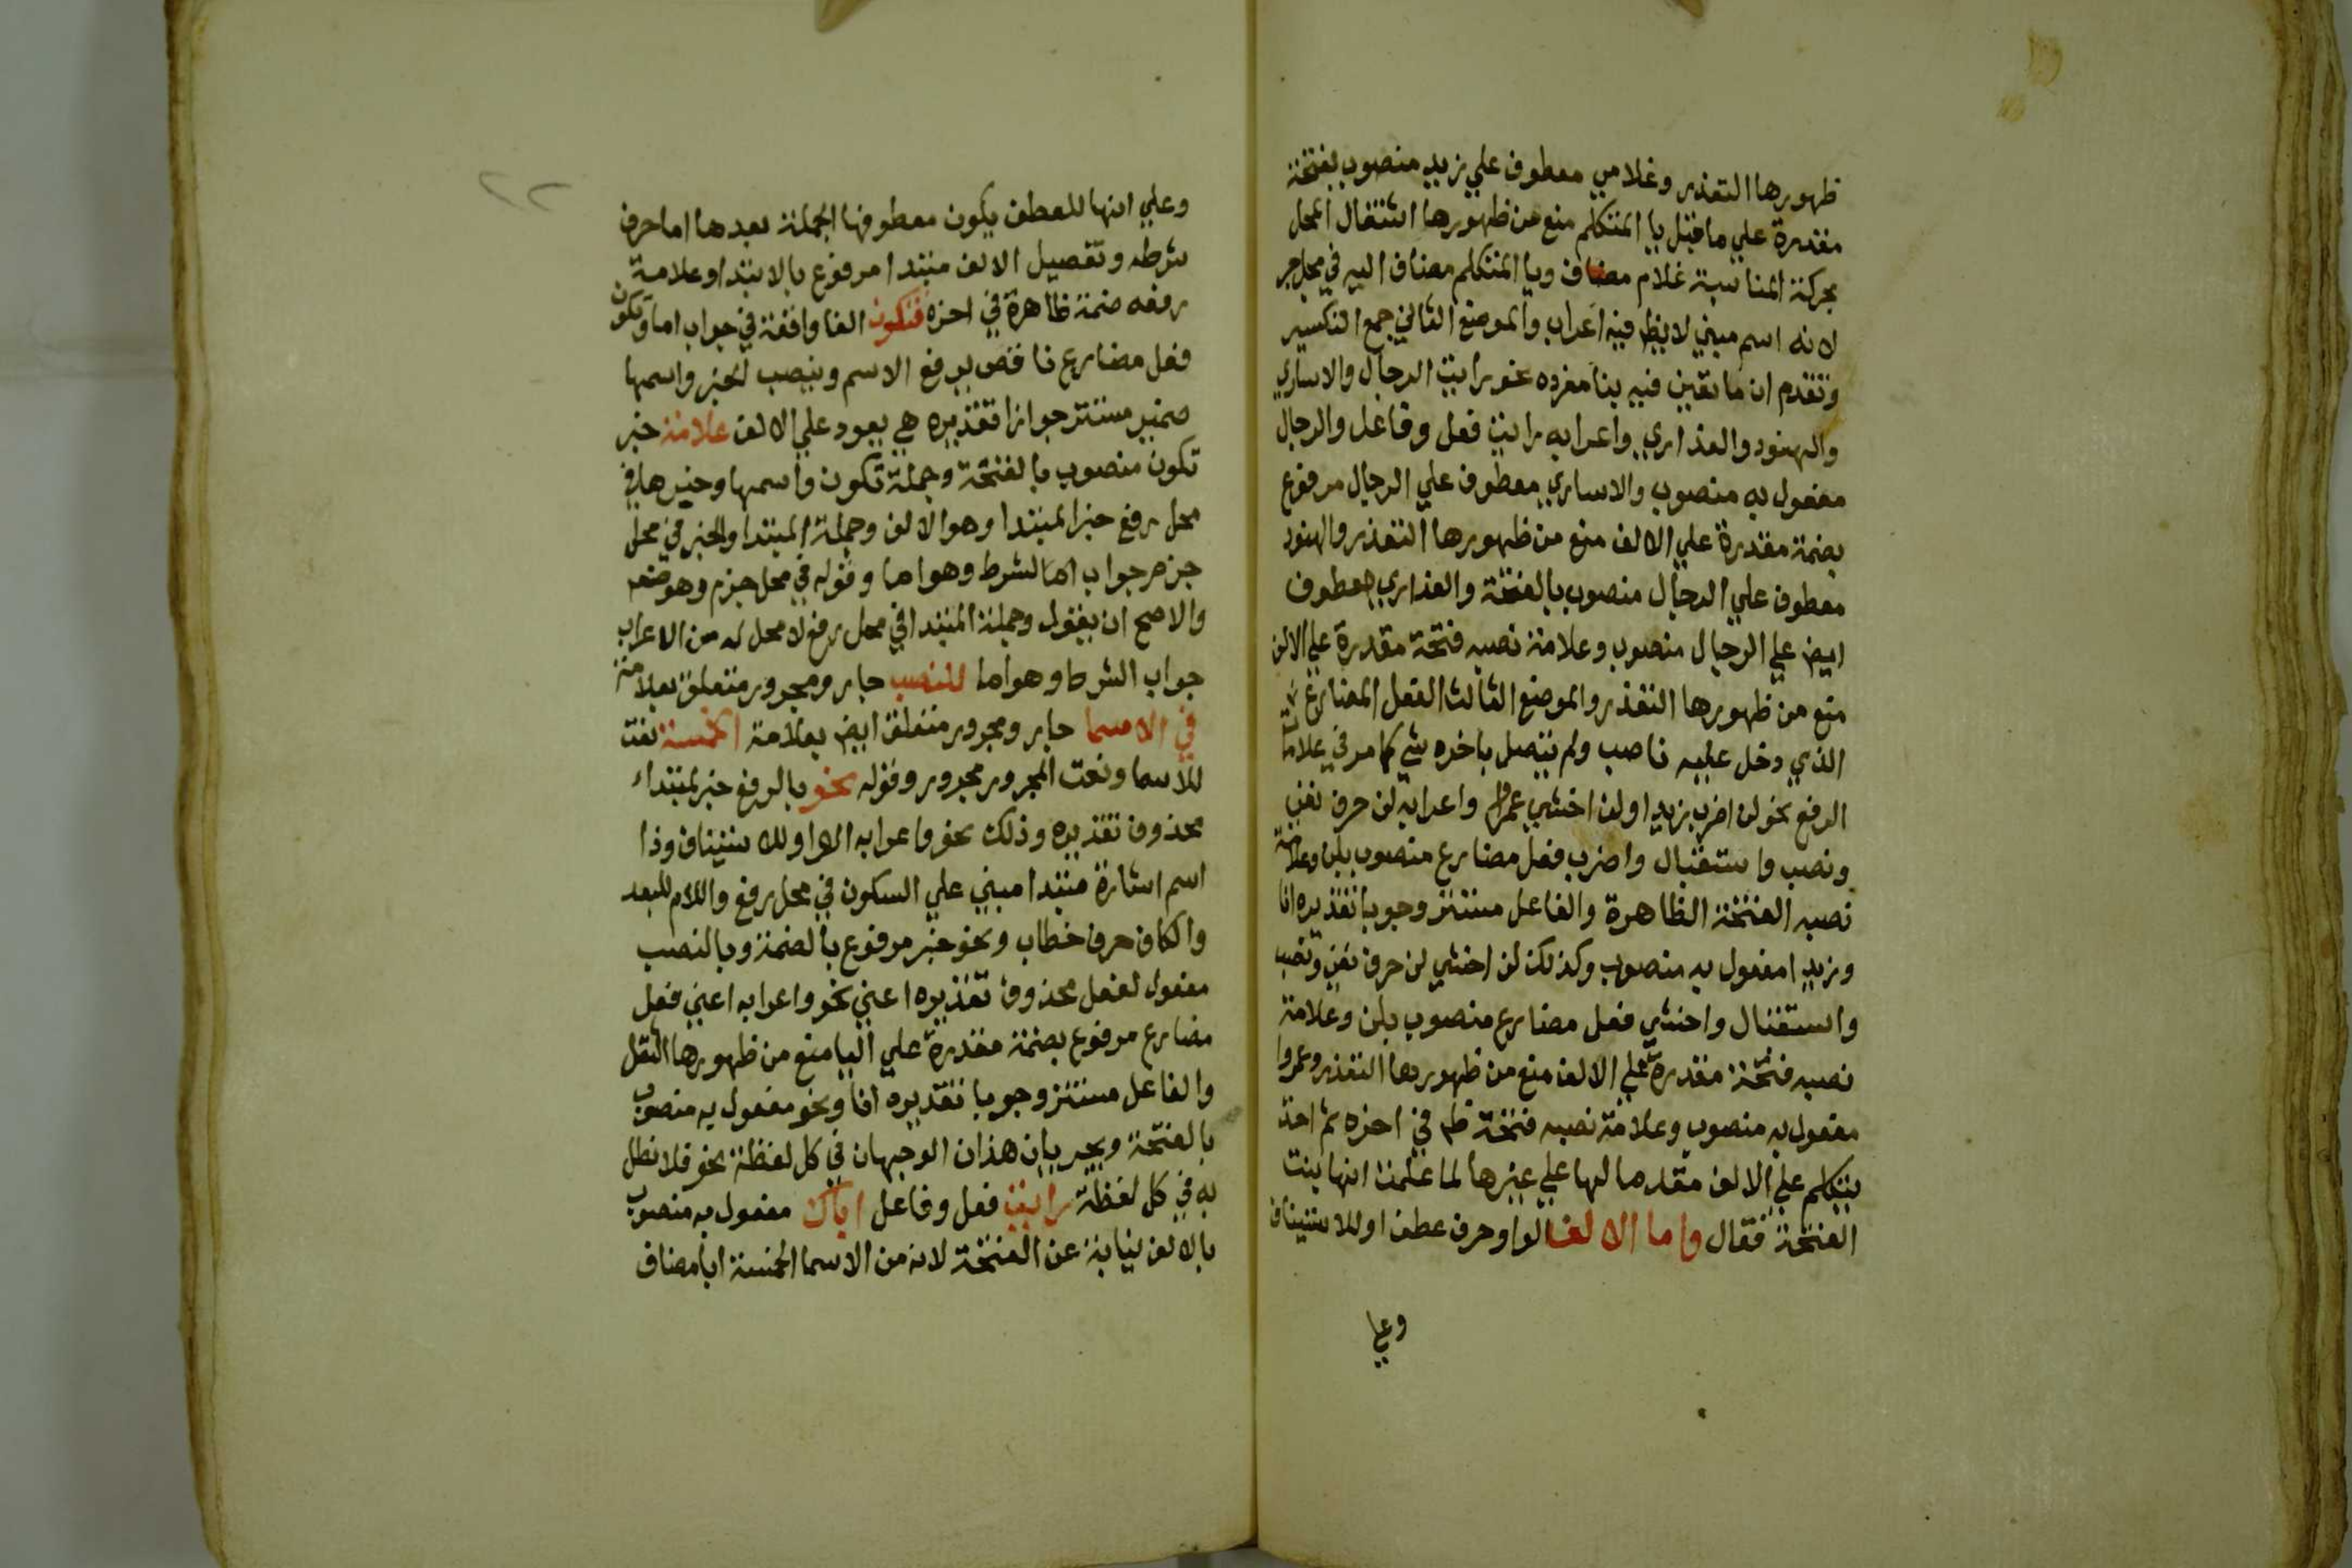 ظهورها التعذر وغلامي معطوف علي زيد منصوب بفتحة
مقدرة علي ما قبل يا المتكلم منع من ظهورها اشتغال المحل
بحركة المناسبة غلام مضاف ويا المتكلم مضاف اليه في محل جر
لانه اسم مبني لا يظهر فيه اعراب والموضع الثاني جمع التكسير
وتقدم ان ما تغير فيه بنا مفرده نحو رايت الرجال والاساري
والهنود والعذاري واعرابه رايت فعل وفاعل والرجال
مفعول به منصوب والاساري معطوف علي الرجال مرفوع
بضمة مقدرة علي الالف منع من ظهورها التعذر والهنود
معطوف علي الرجال منصوب بالفتحة والعذاري معطوف
ايض علي الرجال منصوب وعلامة نصبه فتحة مقدرة علي الالف
منع من ظهورها التعذر والموضع الثالث الفعل المضارع
الذي دخل عليه ناصب ولم يتصل باخره شي كما مر في علامة
الرفع نحو لن اضرب زيدا ولن اخشي عمرا واعرابه لن حرف نفي
ونصب واستقبال واضرب فعل مضارع منصوب بلن وعلامة
نصبه الفتحة الظاهرة والفاعل مستتر وجوبا تقديره انا
وزيدا مفعول به منصوب وكذلك لن اخشي لن حرف نفي ونصب
واستقبال واخشي فعل مضارع منصوب بلن وعلامة
نصبه فتحة مقدرة علي الالف منع من ظهورها التعذر وعمروا
مفعول به منصوب وعلامة نصبه فتحة ظه في اخره ثم اخذ
يتكلم علي الالف مقدما لها علي غيرها لما علمت انها بنت
الفتحة فقال واما الالف الواو حرف عطف او للاستيناف
وعلي
٢٢
وعلي انها للعطف يكون معطوفها الجملة بعدها اما حرف
شرط وتفصيل الالف مبتدا مرفوع بالابتدا وعلامة
رفعه ضمة ظاهرة في اخره فتكون الفا واقعة في جواب اما وتكون
فعل مضارع ناقص يرفع الاسم وينصب لخبر واسمها
ضمير مستتر جوازا تقديره هي يعود علي الالف علامة خبر
تكون منصوب بالفتحة وجملة تكون واسمها وخبرها في
محل رفع خبر المبتدا وهو الالف وجملة المبتدا والخبر في محل
جزم جواب اما الشرط وهو اما وقوله في محل جزم وهو ضعه
والاصح ان يقول وجملة المبتدا في محل رفع لا محل له من الاعراب
جواب الشرط وهو اما للنصب جار ومجرور متعلق بعلامة
في الاسما جار ومجرور متعلق ايض بعلامة الخمسة نعت
للاسما ونعت المجرور مجرور وقوله نحو بالرفع خبر لمبتداء
محذوف تقديره وذلك نحو واعرابه الواو للاستيناف وذا
اسم اشارة مبتدا مبني علي السكون في محل رفع واللام للبعد
والكاف حرف خطاب ونحو خبر مرفوع بالضمة وبالنصب
مفعول لفعل محذوف تقديره اعني نحو واعرابه اعني فعل
مضارع مرفوع بضمة مقدرة علي اليا منع من ظهورها الثقل
والفاعل مستتر وجوبا تقديره انا ونحو مفعول به منصوب
بالفتحة ويجريان هذان الوجهان في كل لفظة نحو فلا نطل
به في كل لفظة رايت فعل وفاعل اباك مفعول به منصوب
بالالف نيابة عن الفتحة لانه من الاسما الخمسة ابا مضاف